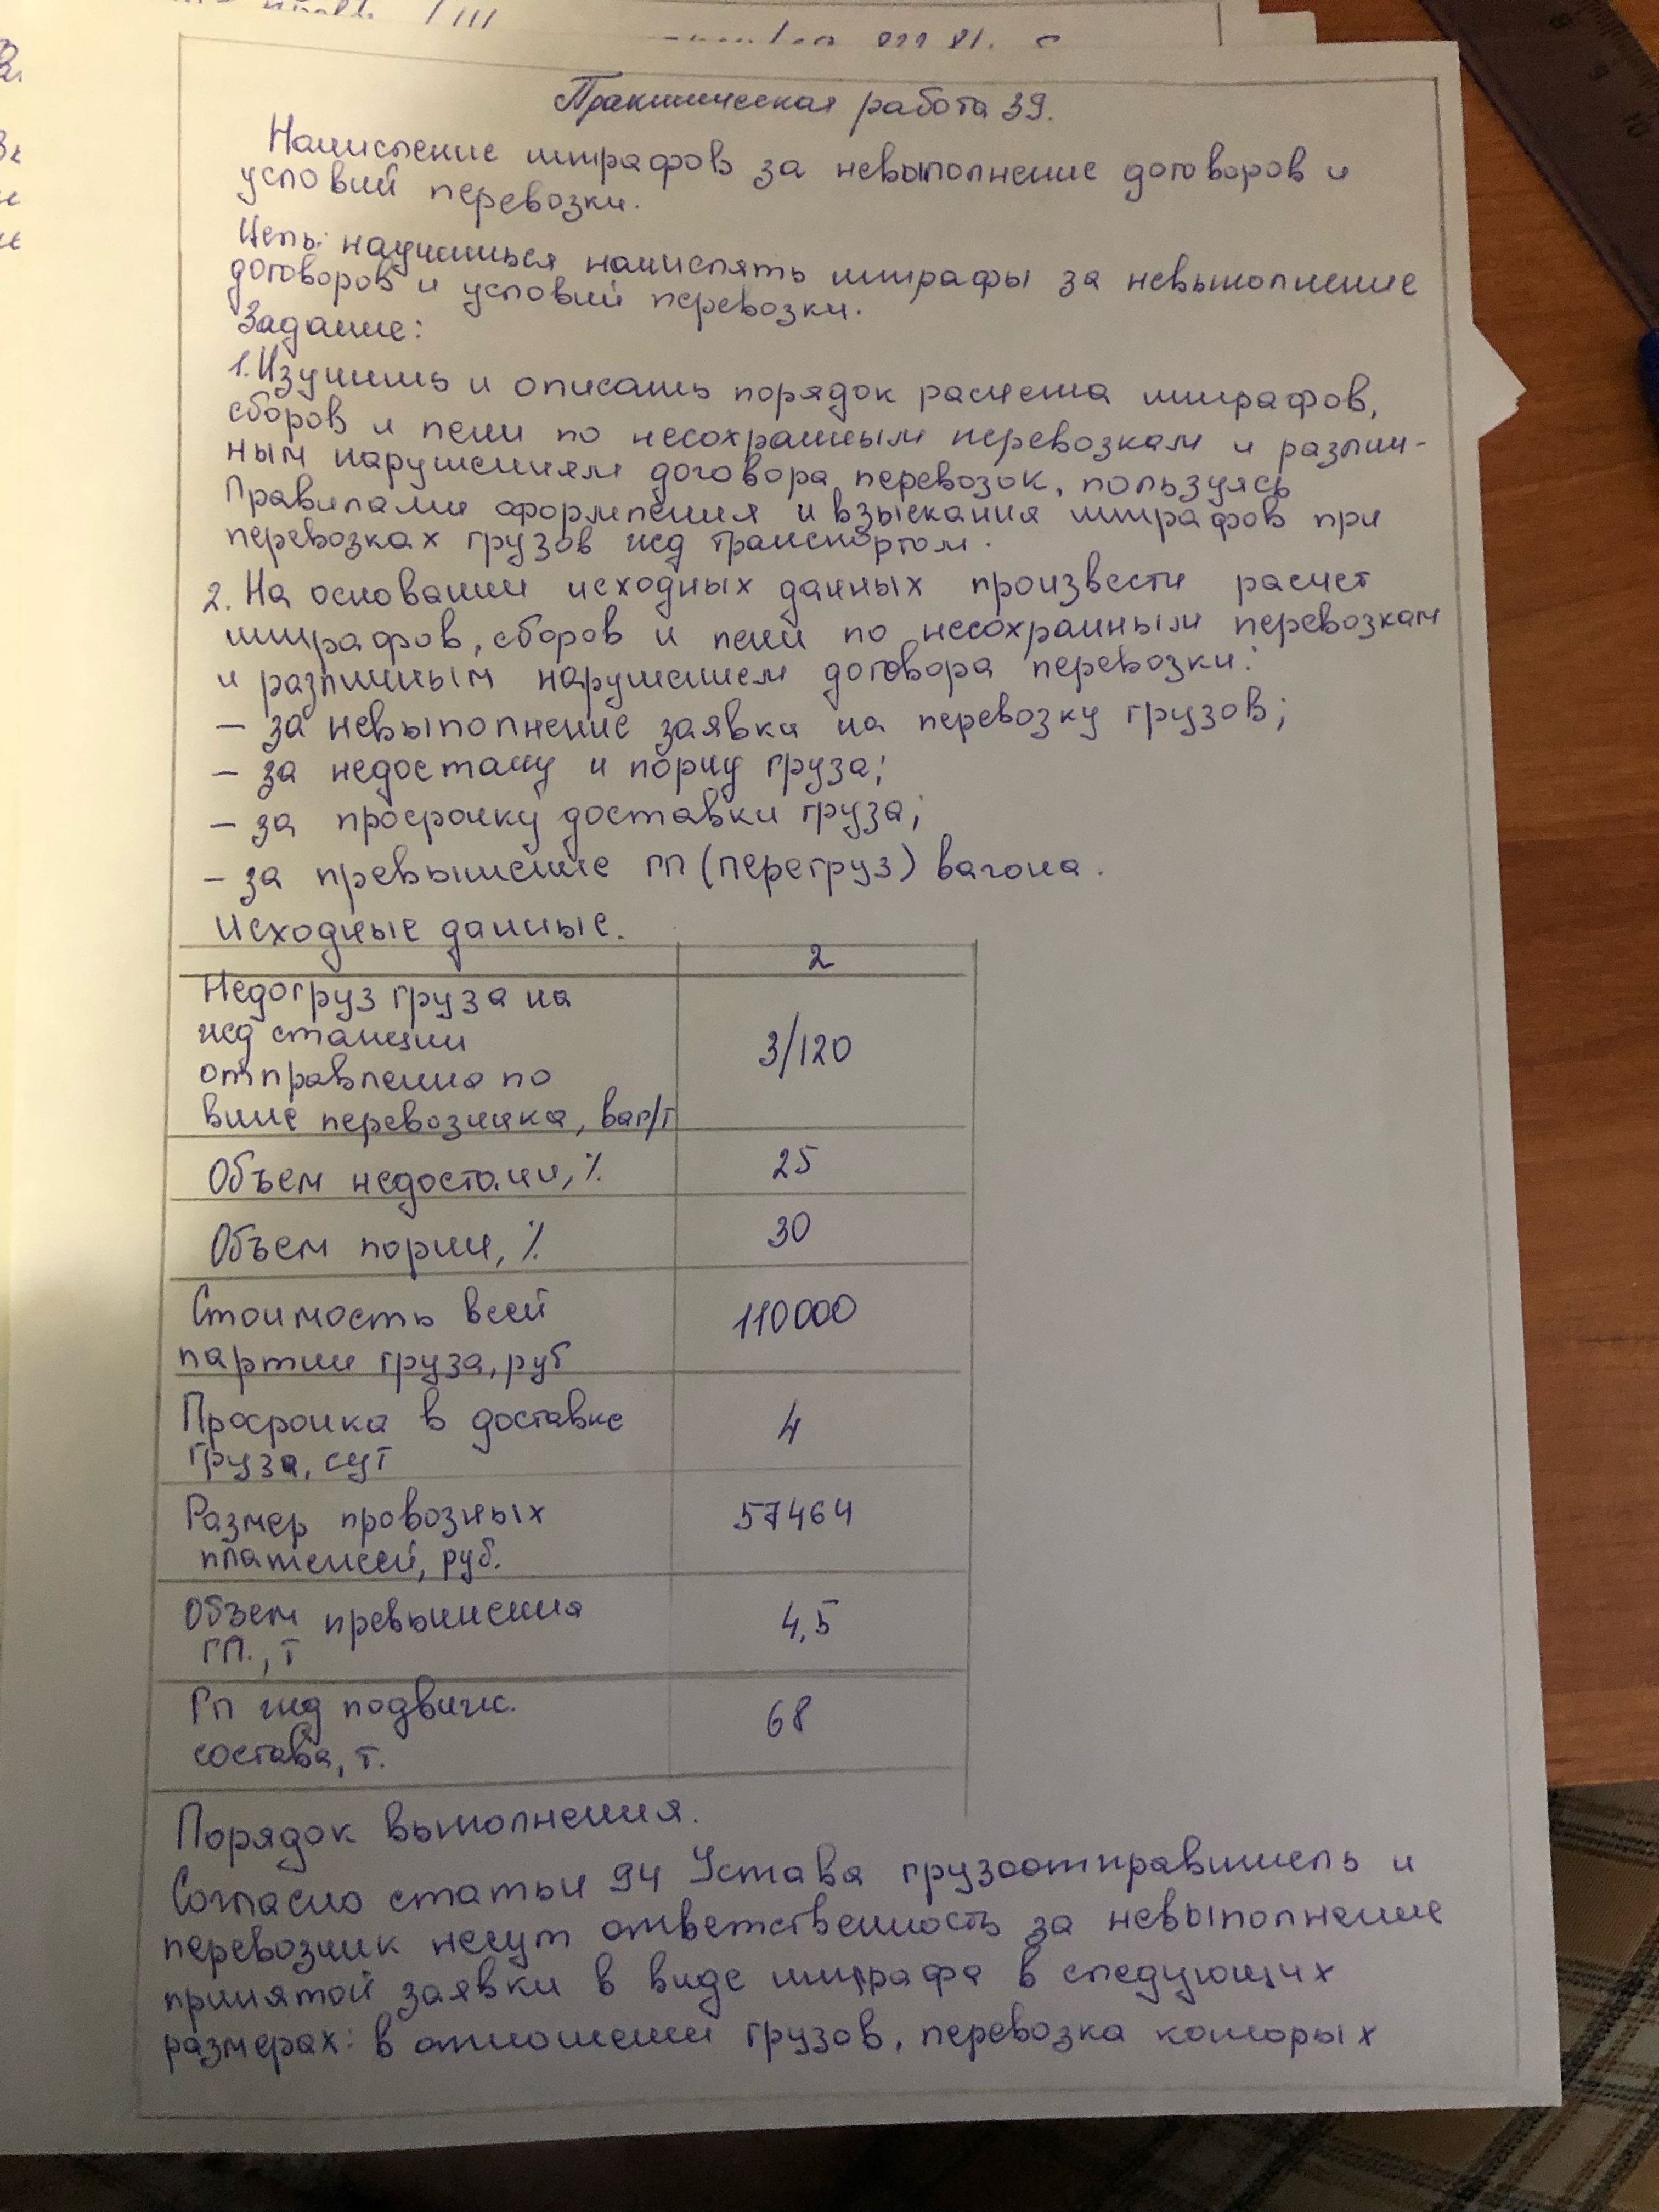 Практическая работа 39.
Начисление штрафов за невыполнение договоров и
условий перевозки.
Цель: научиться начислять штрафы за невыполнение
договоров и условий перевозки.
Задание:
1. Изучить и описать порядок расчета штрафов,
сборов и пени по несохранным перевозкам и различ-
ным нарушениям договора перевозок, пользуясь
Правилами оформления и взыскания штрафов при
перевозках грузов жд транспортом.
2. На основании исходных данных произвести расчет
штрафов, сборов и пени по несохранным перевозкам
и различным нарушением договора перевозки:
– за невыполнение заявки на перевозку грузов;
– за недостачу и порчу груза;
– за просрочку доставки груза;
– за превышение ГП (перегруз) вагона.
Исходные данные.
2
Недогруз груза на
жд станции
отправления по
вине перевозчика, ваг/т
3/120
Объем недостачи, %
25
Объем порчи, %
30
Стоимость всей
партии груза, руб
110000
Просрочка в доставке
груза, сут
4
Размер провозных
платежей, руб.
57464
Объем превышения
ГП., т
4,5
Гп жд подвиж.
состава, т.
68
Порядок выполнения.
Согласно статьи 94 Устава грузоотправитель и
перевозчик несут ответственность за невыполнение
принятой заявки в виде штрафа в следующих
размерах: в отношении грузов, перевозка которых